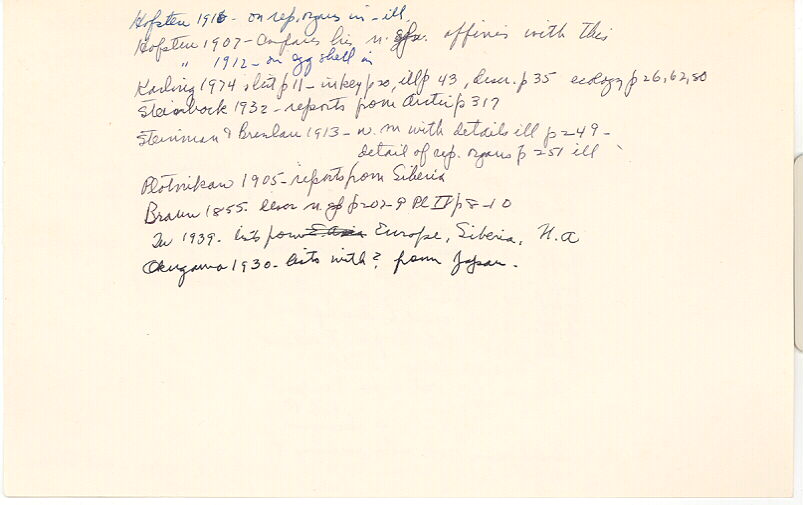 Hofsten 1916 - on rep. organs in - ill.
Hofsten 1907 - Compares his n. sp. affinis with this
" 1912 - on egg shell in
Karling 1974 list p 11 - in key p 20, ill p 43, descr. p 35 ecology p 26, 62, 80
Steinbock 1932 - reports from Arctic p 317
Steinman & Breslau 1913 - n. m with details ill p 249 -
detail of rep. organs p 251 ill
Plotnikow 1905 - reports from Siberia
Braun 1885. descr n gf p 202-9 Pl IV p 8-10
In 1939. lists from Europe, Siberia, N. A
Okugawa 1930 - lists with ? from Japan.